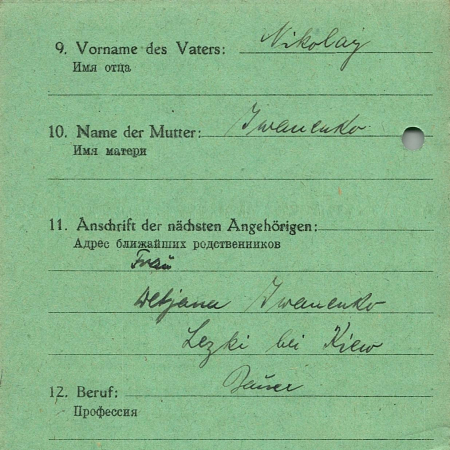 9. Vorname des Vaters: Nikolaj
Имя отца
10. Name der Mutter: Iwanenko
Имя матери
11. Anschrift der nächsten Angehörigen:
Адрес ближайших родственников
Frau
Detjana Iwanenko
Lezki bei Kiew
12. Beruf: Bauer
Профессия